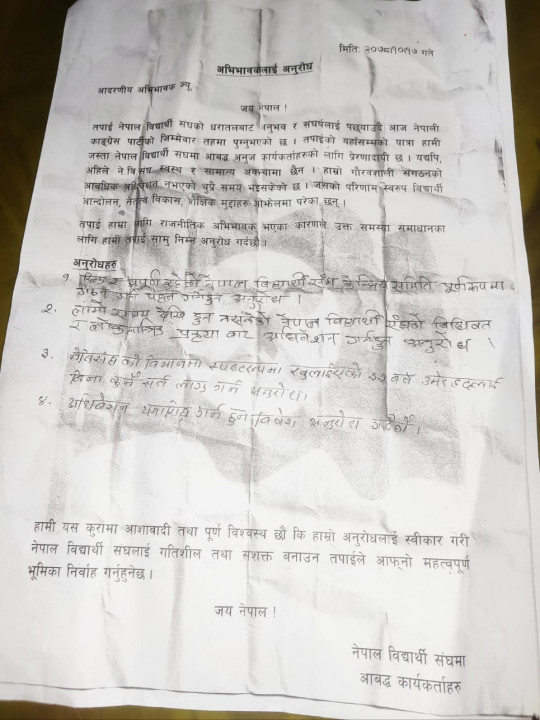 मिति: २०७८।१०।१७ गते
अभिभावकलाई अनुरोध
आदरणीय अभिभावक ज्यू,
जय नेपाल !
तपाई नेपाल विद्यार्थी संघको धरातलबाट अनुभव र संघर्षलाई पछ्याउदै आज नेपाली
काङग्रेस पार्टीको जिम्मेवार तहमा पुग्नुभएको छ । तपाईको यहाँसम्मको यात्रा हामी
जस्ता नेपाल विद्यार्थी संघमा आबद्ध अनुज कार्यकर्ताहरुको लागि प्रेरणादायी छ । यद्यपि,
अहिले ने वि संघ स्वस्थ र सामान्य अवस्थामा छैन । हाम्रो गौरवशाली संगठनको
आवधिक अधिवेशन नभएको थुप्रै समय भइसकेको छ । जसको परिणाम स्वरुप विद्यार्थी
आन्दोलन, नेतृत्व विकास, शैक्षिक मुद्दाहरु ओझेलमा परेका छन् ।
तपाई हाम्रा लागि राजनीतिक अभिभावक भएका कारणले उक्त समस्या समाधानका
लागि हामी तपाई सामु निम्न अनुरोध गर्दछौं ।
अनुरोधहरु
१. रहेको नेपाल विद्यार्थी संघ केन्द्रिय समिति पूर्णरूपमा
गर्न पहल गरिदिन अनुरोध ।
२. लामो समय देखि हुन नसकेको नेपाल विद्यार्थी संघको विधिवत
र लोकतान्त्रिक प्रकृया बाट अधिवेशन गर्नहुन अनुरोध ।
३. नेविसंघ को विधानमा स्पष्टरूपमा ३२ बर्षे उमेर हदलाई
बिना कुनै सर्त लागु गर्न अनुरोध।
४. अधिवेशन यथाशिघ्र गर्न हुन विशेष अनुरोध गर्दछौं ।
हामी यस कुरामा आशावादी तथा पूर्ण विश्वस्थ छौ कि हाम्रो अनुरोधलाई स्वीकार गरी
नेपाल विद्यार्थी संघलाई गतिशील तथा सशक्त बनाउन तपाईले आफ्नो महत्वपूर्ण
भूमिका निर्वाह गर्नुहुनेछ ।
जय नेपाल !
नेपाल विद्यार्थी संघमा
आबद्ध कार्यकर्ताहरु